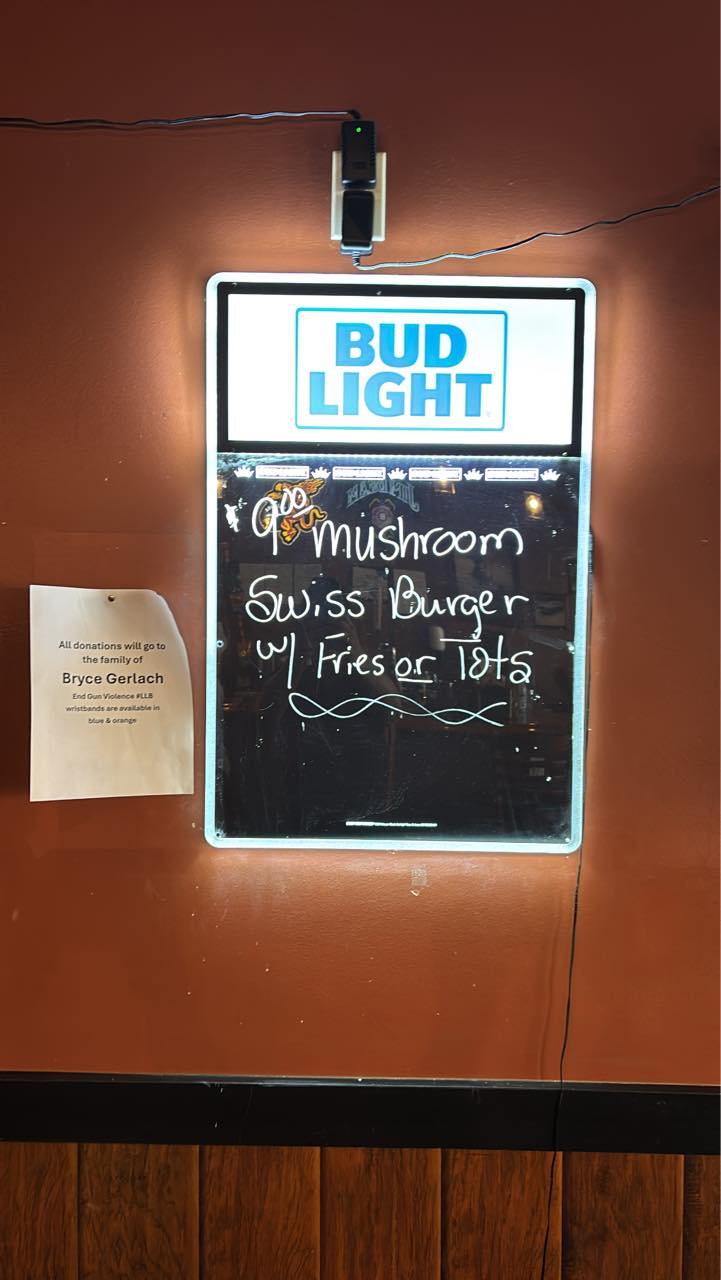 BUD
LIGHT
$9.00 mushroom
Swiss Burger
w/ Fries or Tots
All donations will go to
the family of
Bryce Gerlach
End Gun Violence #LLB
wristbands are available in
blue & orange